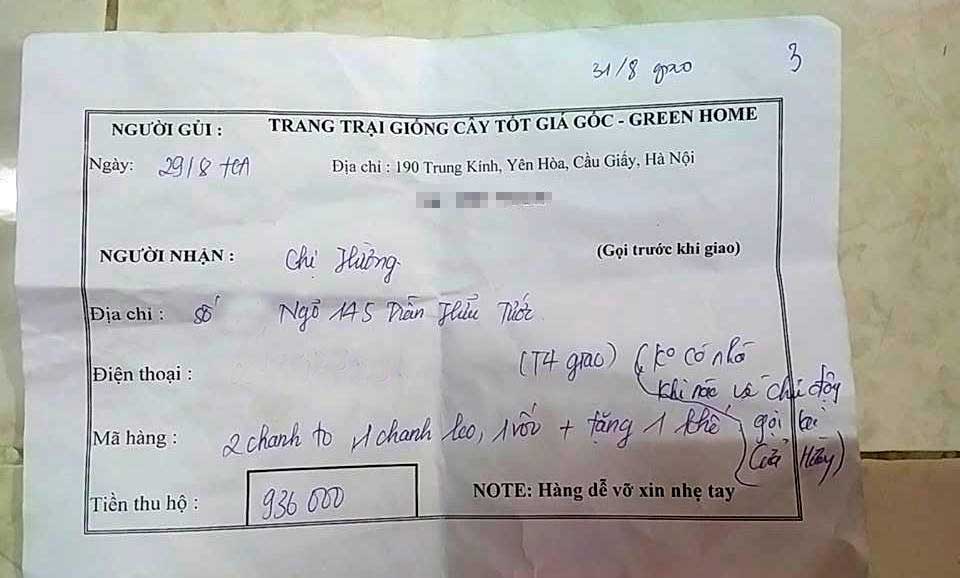 31/8 giao 3
NGƯỜI GỬI : TRANG TRẠI GIỐNG CÂY TỐT GIÁ GỐC - GREEN HOME
Ngày: 29/8 Địa chỉ : 190 Trung Kính, Yên Hòa, Cầu Giấy, Hà Nội
NGƯỜI NHẬN : Chị Hường (Gọi trước khi giao)
Địa chỉ : số Ngõ 145 Trần Hữu Tước
Điện thoại : (T4 giao) (ko có nhà
khi nào về chủ động
Mã hàng : 2 chanh to, 1 chanh leo, 1 vối + tặng 1 khế gọi lại
Tiền thu hộ : 936 000 NOTE: Hàng dễ vỡ xin nhẹ tay